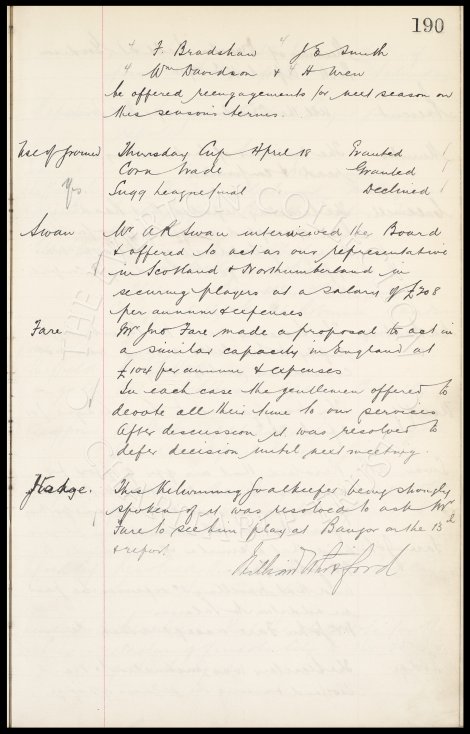 190
" F. Bradshaw " J E Smith
" Wm Davidson & H Wren
be offered reengagements for next season on
this season's terms.
Use of Ground Thursday Cup April 18 Granted
Corn Trade Granted
Yes Sugg League final Declined
Swan Mr A R Swan interviewed the Board
& offered to act as our representative
in Scotland & Northumberland in
securing players at a salary of £208
per annum & expenses
Fare Mr Jno Fare made a proposal to act in
a similar capacity in England at
£104 per annum & expenses
In each case the gentlemen offered to
devote all their time to our services
After discussion it was resolved to
defer decision until next meeting.
This Goalkeeper being strongly
spoken of it was resolved to ask Mr
Fare to see him play at Bangor on the 13th
& report.